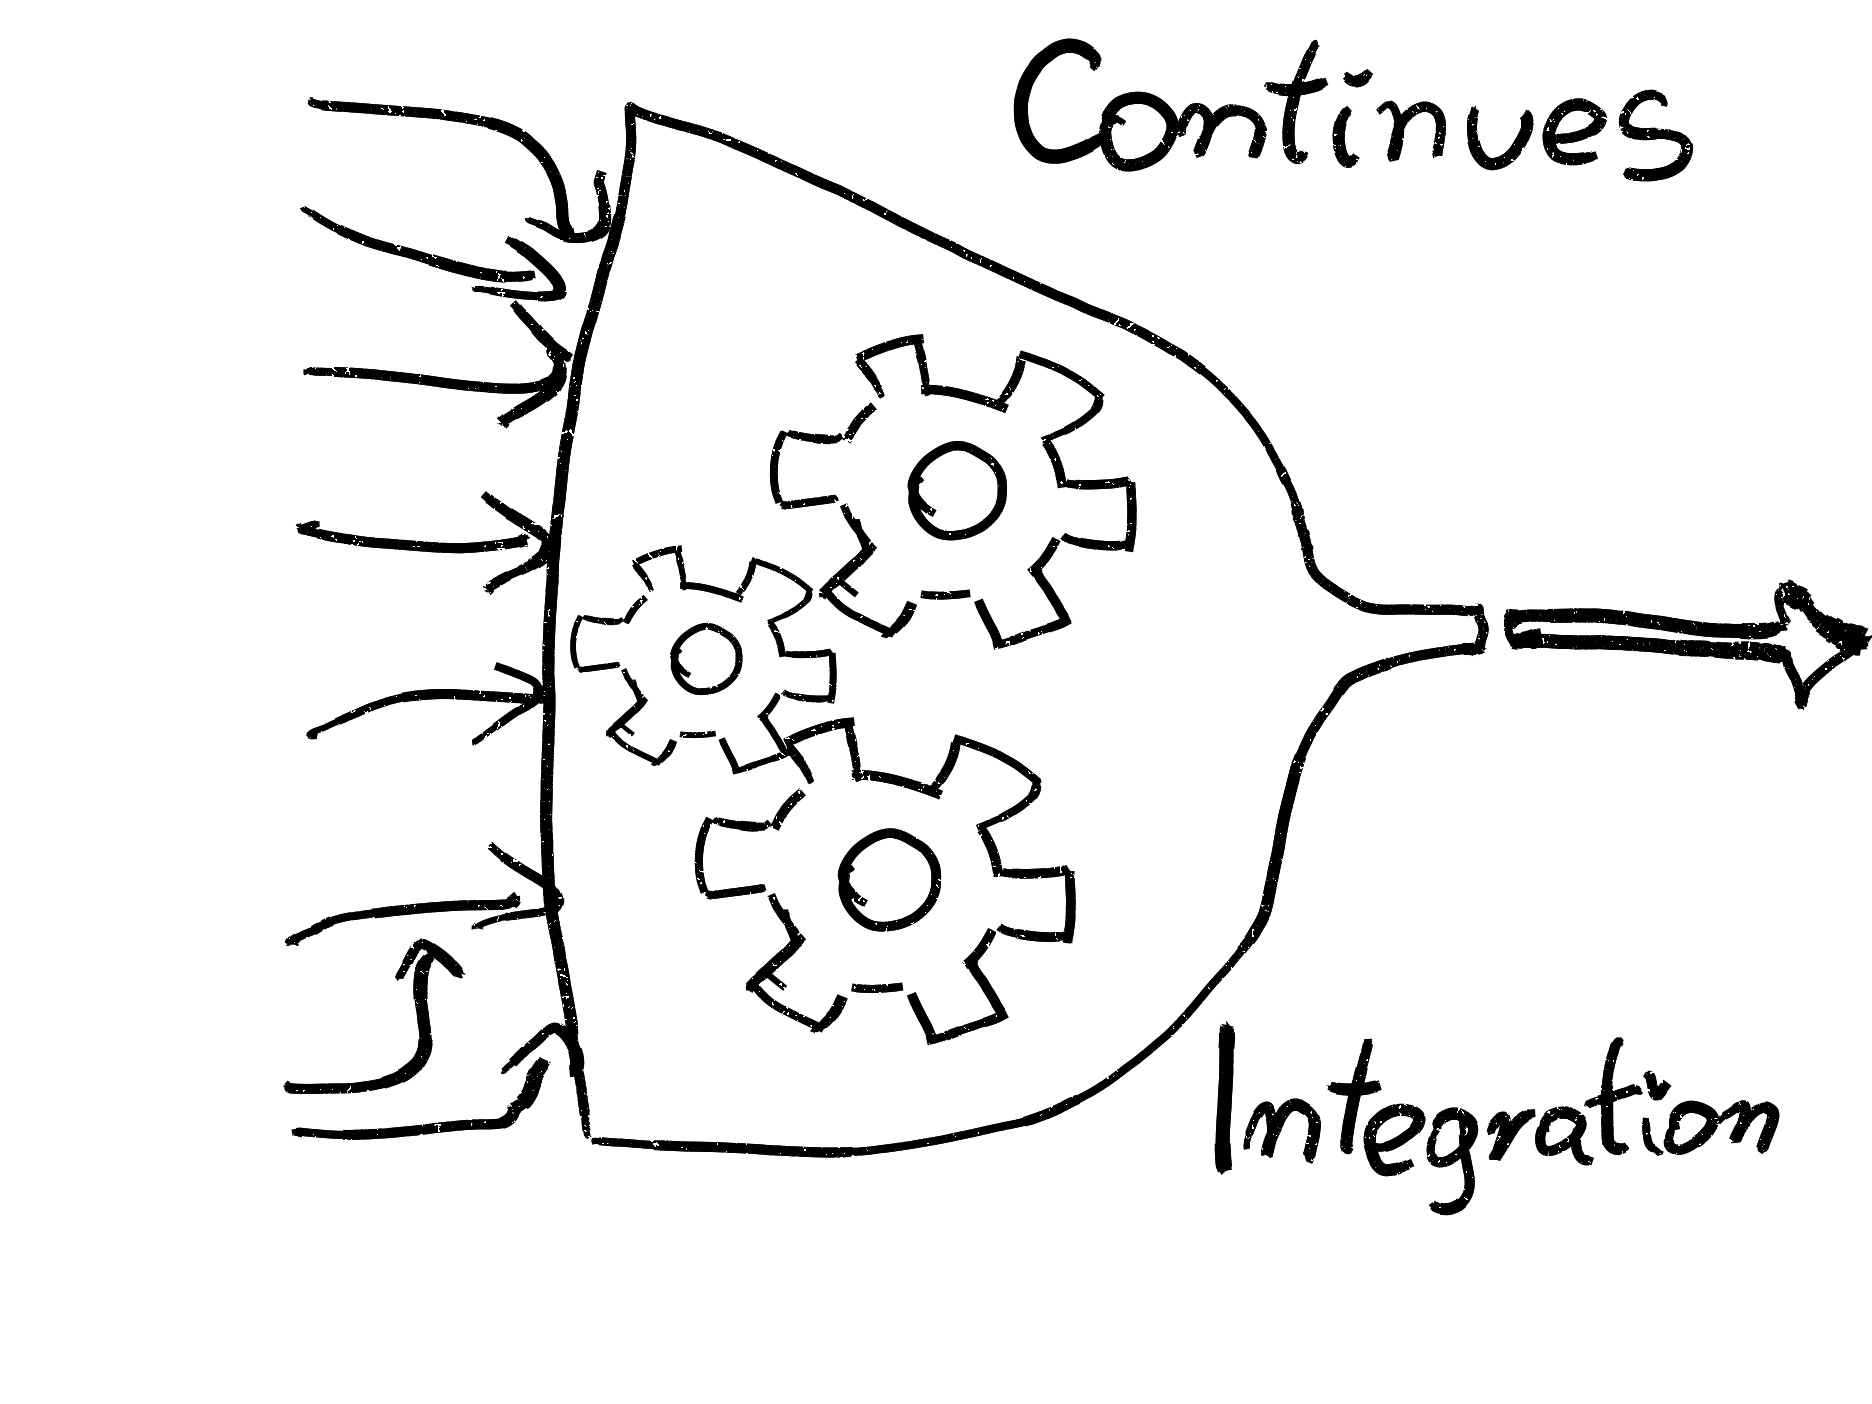 Continues
Integration